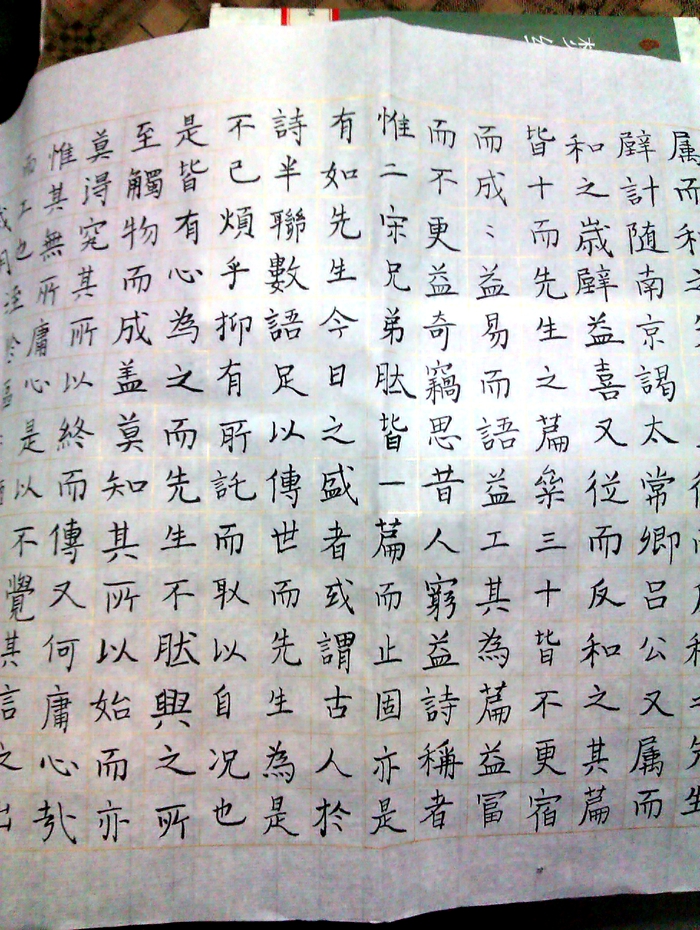 属而和之
壁計随南京謁太常卿吕公又属而
和之歲壁益喜又從而反和之其篇
皆十而先生之篇絫三十皆不更宿
而成〻益易而語益工其為篇益冨
而不更益奇竊思昔人窮益詩稱者
惟二宋兄弟肰皆一篇而止固亦是
有如先生今日之盛者或謂古人於
詩半聯數語足以傳世而先生為是
不已煩乎抑有所託而取以自况也
是皆有心為之而先生不肰興之所
至觸物而成盖莫知其所以始而亦
莫得究其所以終而傳又何庸心㢤
惟其無所庸心是以不覺其言之出
而工也